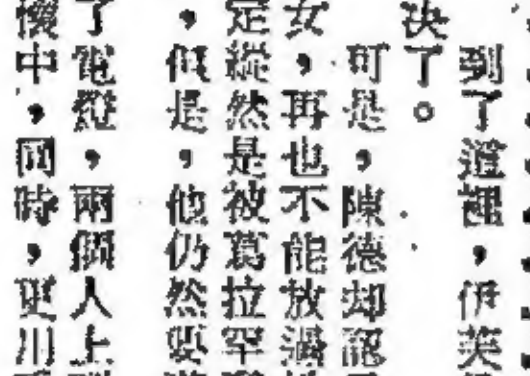 決了。
到了這裡，伊芙
可是，陳德却
女，再也不能放過
定縱然是被葛拉罕
，但是，他仍然要
了電燈，兩個人上
懷中，同時，更